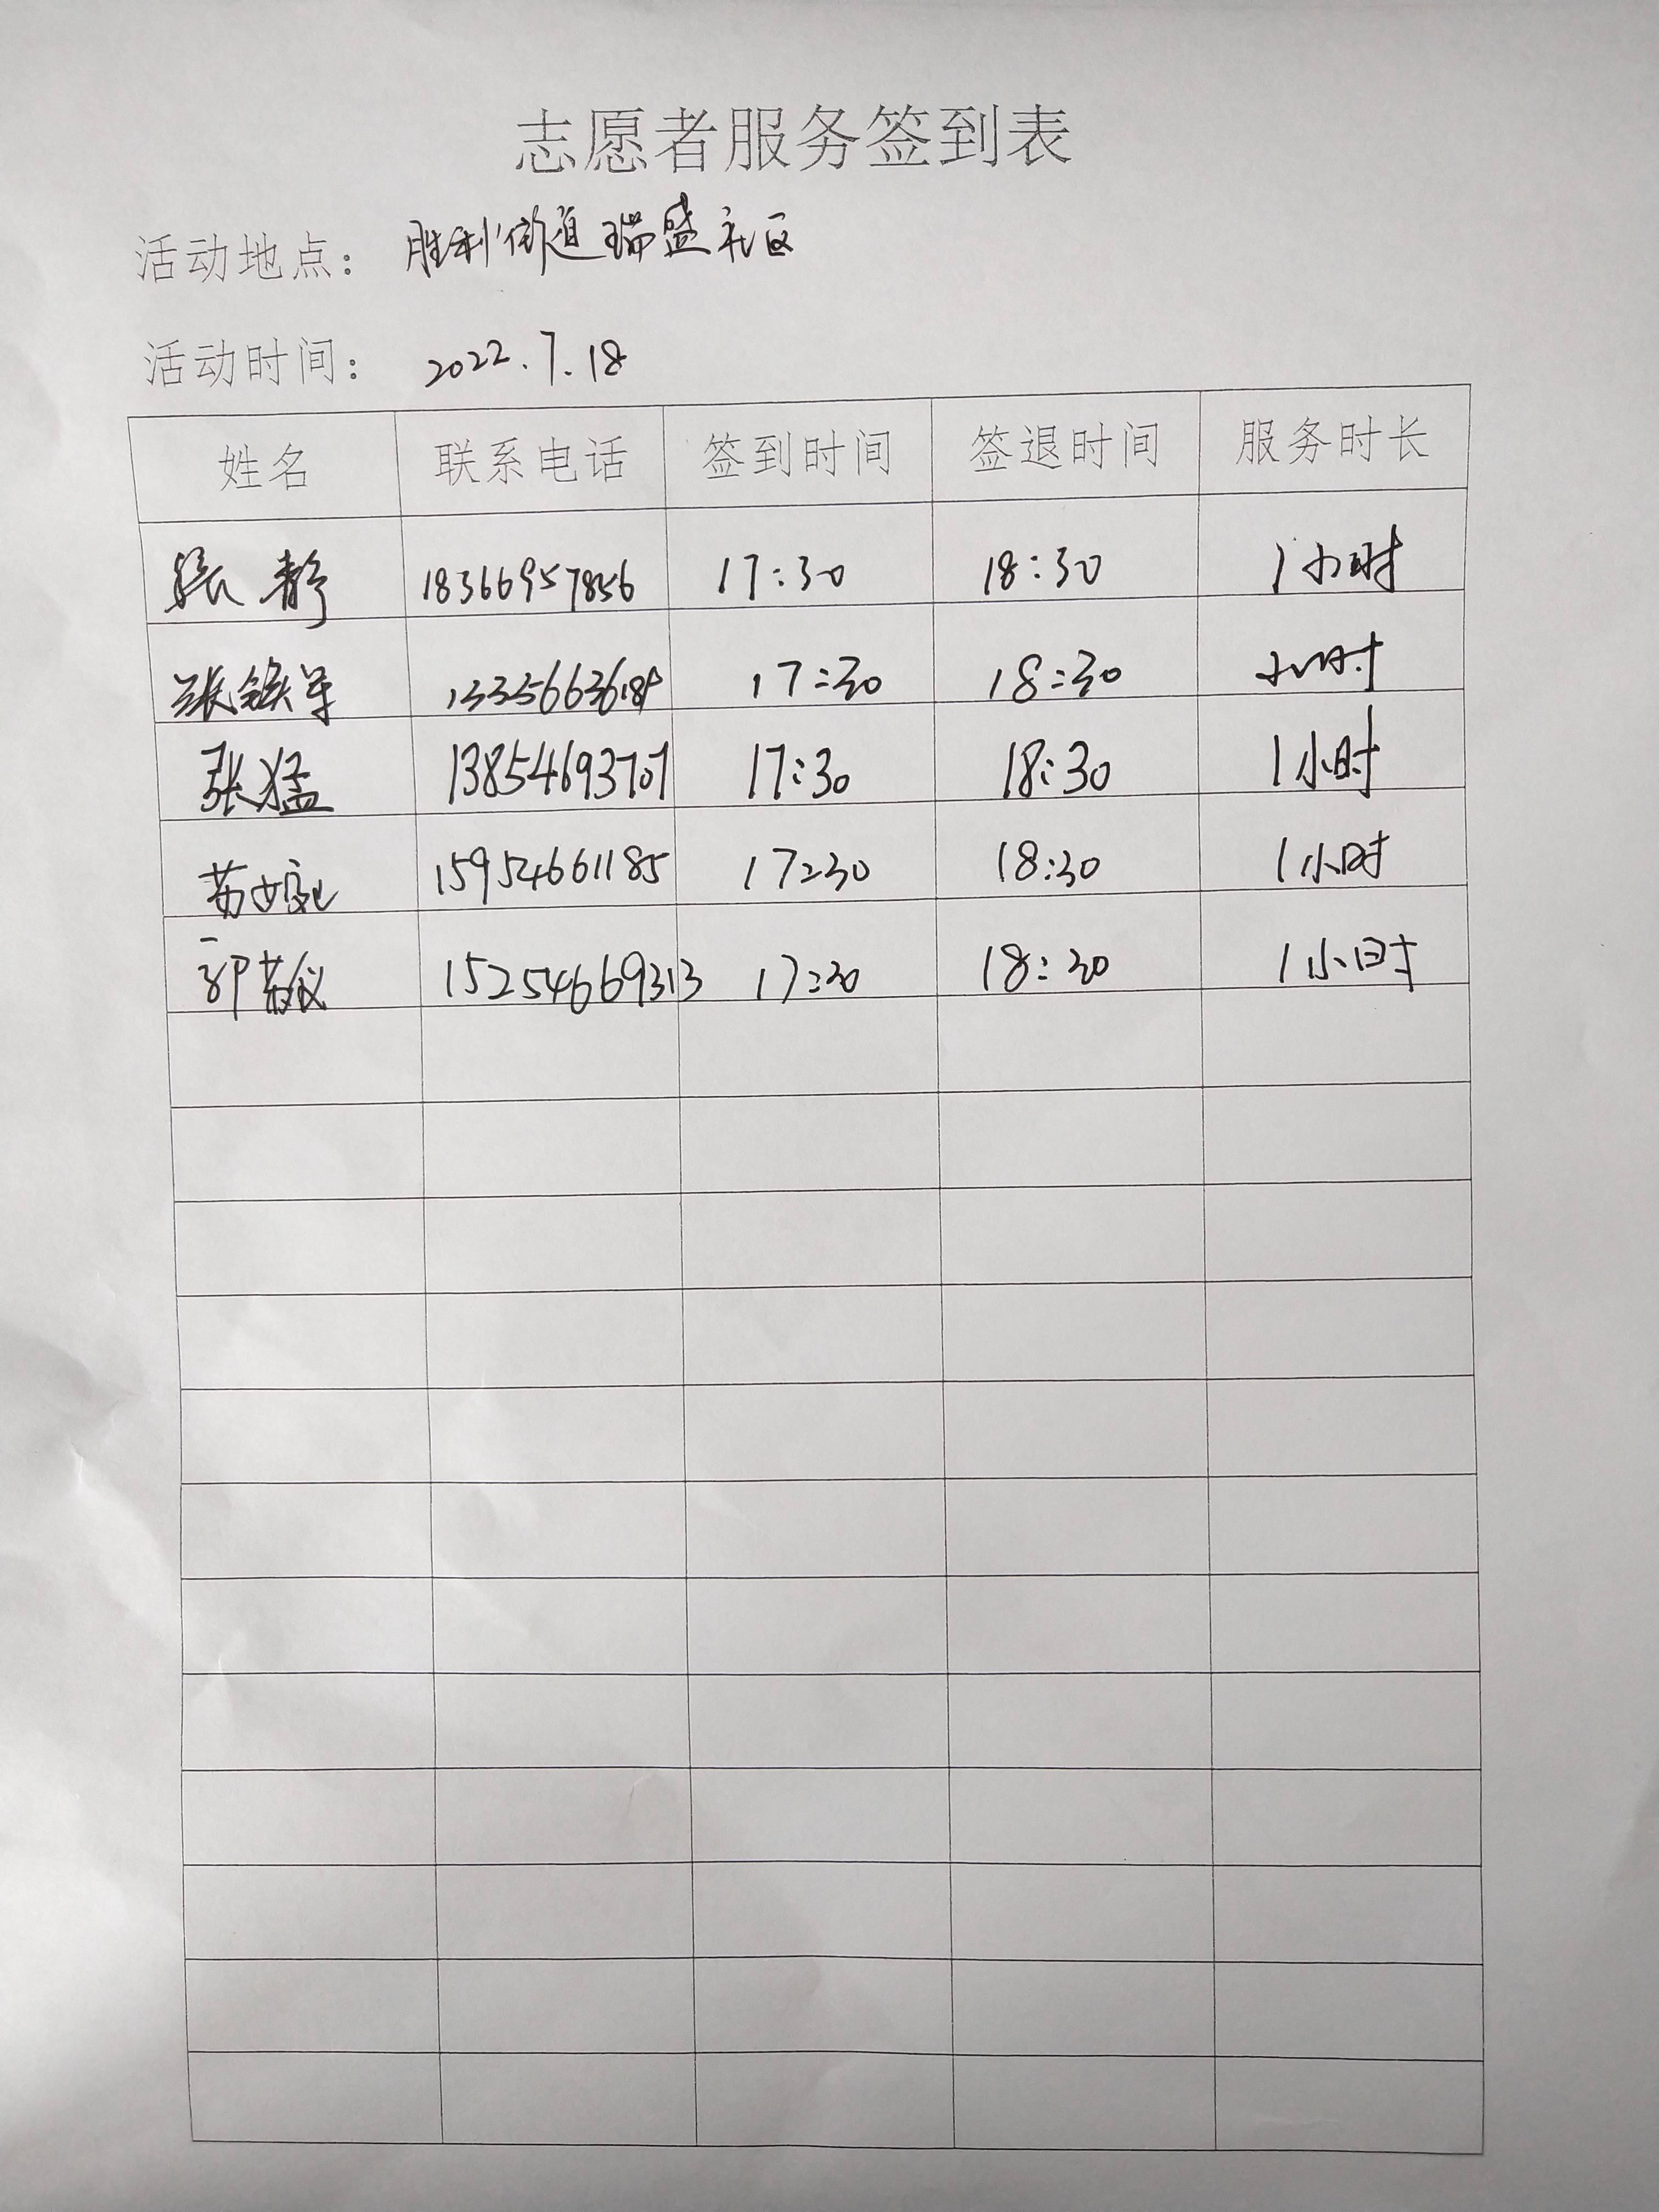 志愿者服务签到表
活动地点： 胜利街道瑞盛社区
活动时间： 2022.7.18
姓名 联系电话 签到时间 签退时间 服务时长
张静 18366957856 17:30 18:30 1小时
张铁军 17:30 18:30 小时
张猛 13854693707 17:30 18:30 1小时
苏 15954661185 17:30 18:30 1小时
15254669313 17:30 18:30 1小时